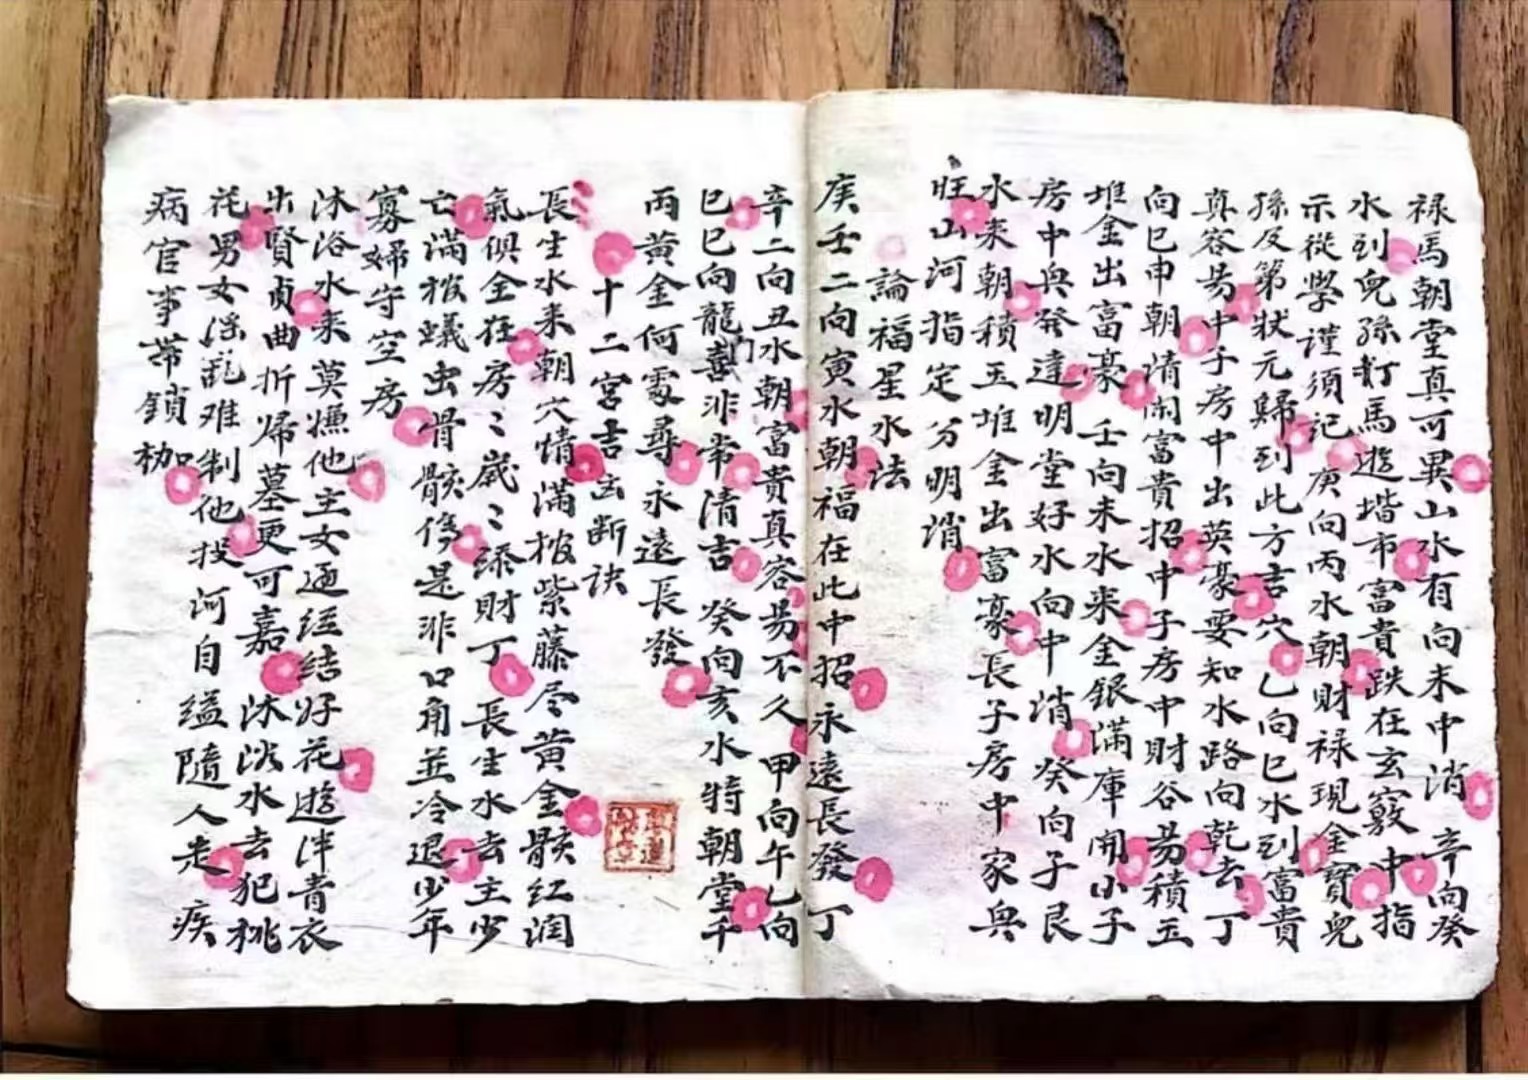 禄馬朝堂真可異山水有向未中消 辛向癸
水到兒孫打馬遊堦市富貴跌在玄竅中指
示從學謹須記 庚向丙水朝財禄現金寳兒
孫及第狀元歸到此方吉穴乙向巳水到富貴
真容昜中子房中出英豪要知水路向乾去 丁
向巳申朝清閑富貴招中子房中財谷昜積玉
堆金出富豪 壬向未水来金銀滿庫開小子
房中興發達明堂好水向中消 癸向子艮
水来朝積玉堆金出富豪長子房中家興
旺山河指定分明消
論福星水法
庚壬二向寅水朝福在此中招永遠長發 丁
辛二向丑水朝富貴真容昜不久 甲向午乙向
巳巳向龍喜非常清吉 癸向亥水特朝堂千
両黄金何處尋永遠長發
十二宮吉凶断訣
長生水来朝穴情滿棺紫藤尽黄金骸紅潤
氣俱全在房〻歳〻添財丁 長生水去主少
亡滿棺蟻虫骨骸傷是非口角並冷退少年
寡婦守空房
沐浴水来莫嫵他主女通經結好花遊泮青衣
出賢貞曲折歸墓更可嘉 沐浴水去犯桃
花男女滛亂难制他投河自缢隨人走 疾
病官事帯鎖枷